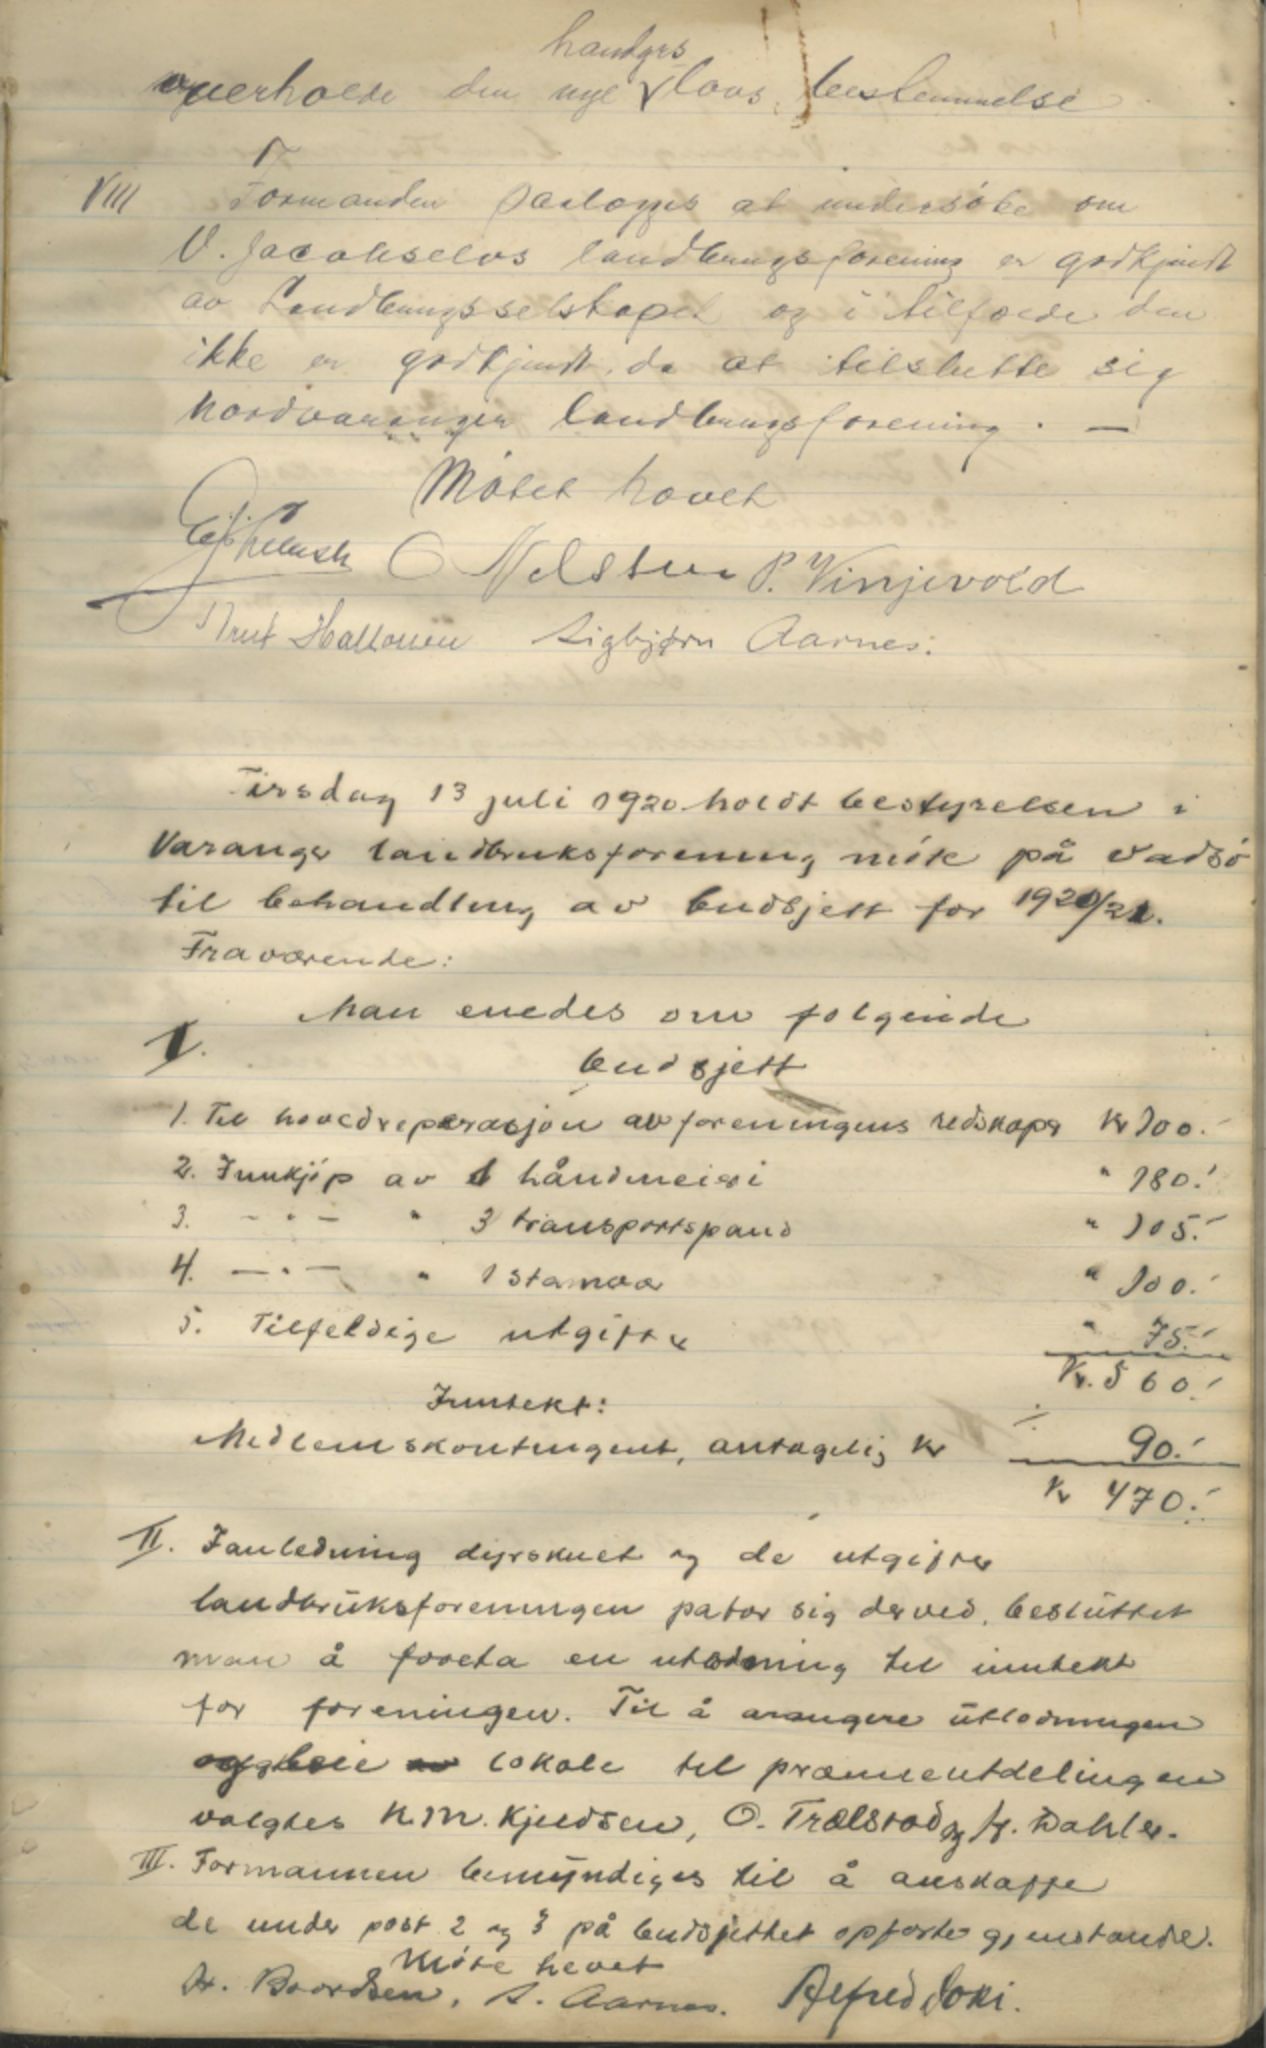 handyrs
overholde den nye V lovs bestemmelse
VIII Formanden paalægges at undersöke om
V. Jacobselvs landbrugsforening er godkjendt
av Landbrugsselskapet og i tilfælde den
ikke er godkjendt, da at tilslutte sig
Nordvaranger landbrugsforening. —
Møtet hævet
O Nelstuen P. Vinjevold
Hallonen Sigbjørn Aarnes.
Tirsdag 13 juli 1920 holdt bestyrelsen i
Varanger landbruksforening möte på Vadsö
til behandling av budsjett for 1920/21.
Fraværende:
Man enedes om følgende
I.
budsjett
1. Til hovedreparasjon av foreningens redskaper Kr 100.-
2. Innkjöp av 1 håndmeieri " 180.-
3. - " - " 3 transportspand " 105.-
4. - " - " 1 " 100.-
5. Tilfeldige utgifter " 75.-
Kr. 560.-
Inntekt:
Medlemskontingent, antagelig kr ÷ 90.-
Kr 470.-
II. I anledning dyrskuet og de utgifter
landbruksforeningen patar sig derved, besluttet
man å foreta en utlodning til inntekt
for foreningen. Til å arangere utlodningen
og leie av lokale til præmieutdelingen
valgtes N. M. Kjeldsen, O. Trælstad og Hr. Dahler.
III. Formannen bemyndiges til å anskaffe
de under post 2 og 3 på budsjettet opförte gjenstande.
Möte hevet
Hr. Baardsen. S. Aarnes. Alfred Joki.